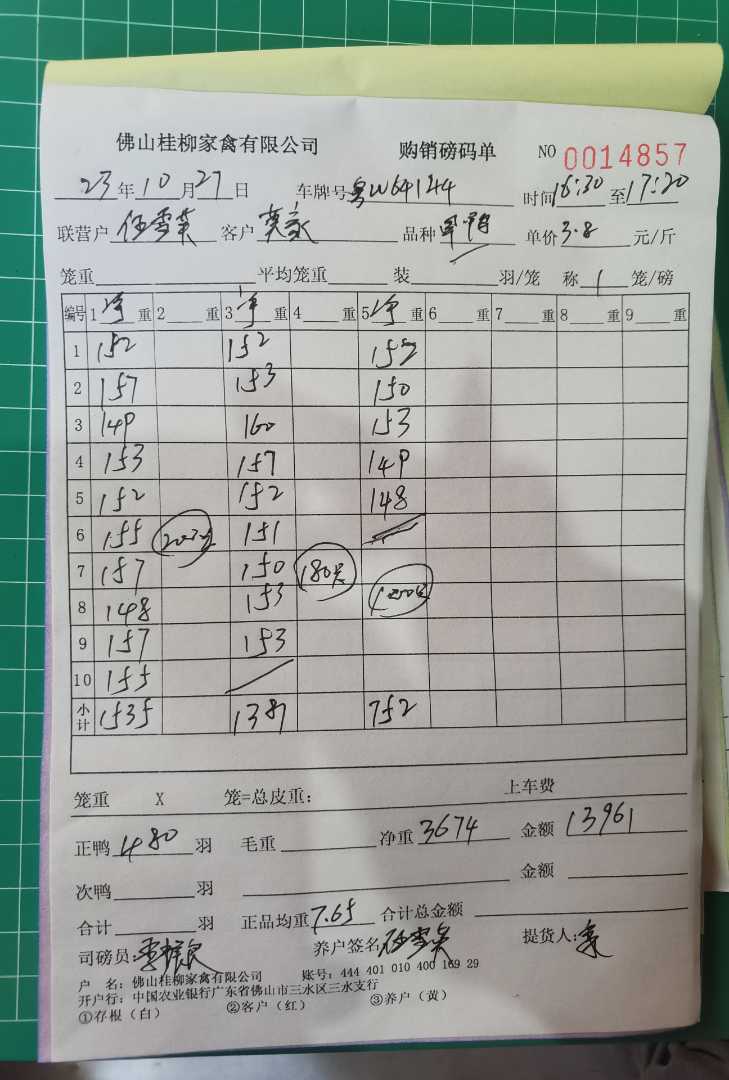 佛山桂柳家禽有限公司 购销磅码单 NO 0014857
23年10月27日 车牌号粤W64144 时间16:30至17:20
联营户伍雪英 客户 品种 单价3.8元/斤
笼重 平均笼重 装 羽/笼 称1笼/磅
编号 1净重 2重 3净重 4重 5净重 6重 7重 8重 9重
1 152 152 155
2 157 153 150
3 149 160 153
4 153 157 149
5 152 152 148
6 155 151
7 157 150 180只
8 148 153
9 157 153
10 155
小计 1535 1387 752
笼重 X 笼=总皮重: 上车费
正鸭480羽 毛重 净重3674 金额13961
次鸭 羽 金额
合计 羽 正品均重7.65 合计总金额
司磅员: 养户签名 提货人:
户 名: 佛山桂柳家禽有限公司 账号: 444 401 010 400 169 29
开户行: 中国农业银行广东省佛山市三水区三水支行
①存根(白) ②客户(红) ③养户(黄)